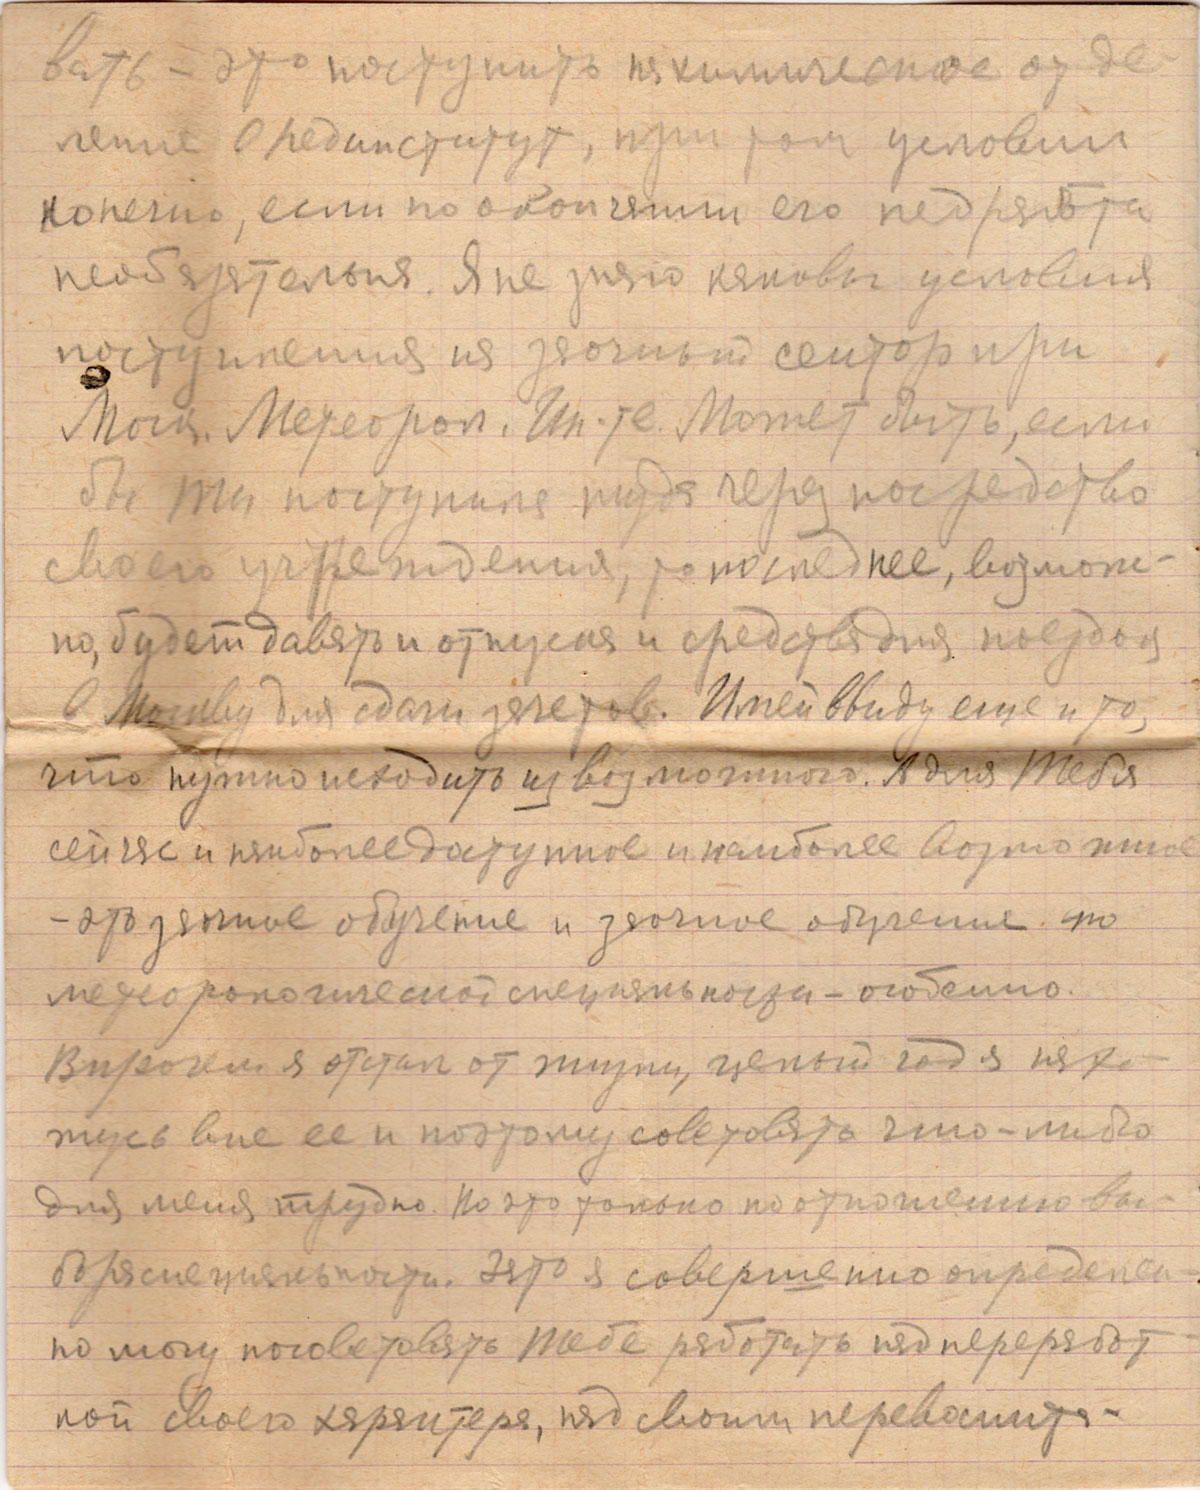 вать – это поступить на химическое отде-
ление в Пединститут, при том условии
конечно, если по окончании его педработа
необязательна. Я не знаю каковы условия
поступления на заочный сектор при
Моск. Метеорол. Ин-те. Может быть, если
бы ты поступила туда через посредство
своего учреждения, то последнее, возмож-
но, будет давать и отпуска и средства для поездок
в Москву для сдачи зачетов. Имей ввиду еще и то,
что нужно исходить из возможного. А для тебя
сейчас и наиболее доступное и наиболее возможное
– это заочное обучение и заочное обучение по
метеорологической специальности – особенно.
Впрочем я отстал от жизни, целый год я нахо-
жусь вне ее и поэтому советовать что-либо
для меня трудно. Но это только по отношению вы-
бора специальности. Зато я совершенно определен-
но могу посоветовать тебе работать над переработ
кой своего характера, над своим перевоспита-